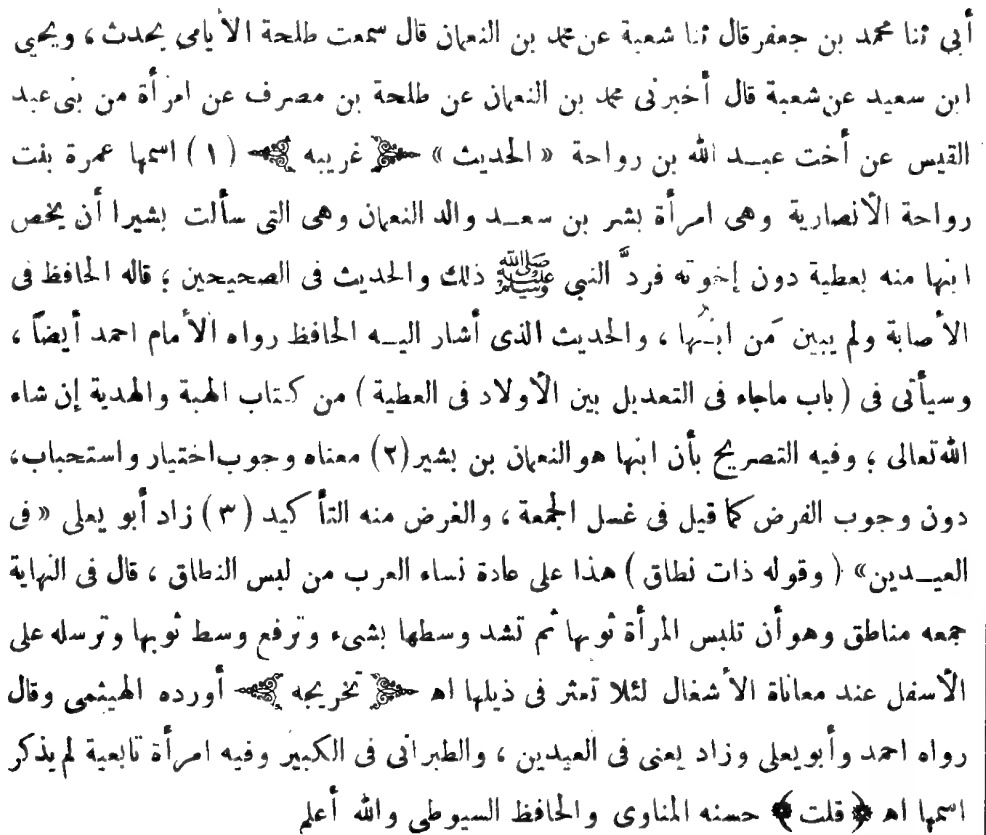 أبي ثنا محمد بن جعفر قال ثنا شعبة عن محمد بن النعمان قال سمعت طلحة الأيامى يحدث ، ويحيى
ابن سعيد عن شعبة قال أخبرنى محمد بن النعمان عن طلحة بن مصرف عن امرأة من بنى عبد
القيس عن أخت عبد الله بن رواحة « الحديث » غريبه (١) اسمها عمرة بنت
رواحة الأنصارية وهى امرأة بشر بن سعد والد النعمان وهى التى سألت بشيرا أن يخص
ابنها منه بعطية دون إخوته فردَّ النبي ﷺ ذلك والحديث فى الصحيحين ؛ قاله الحافظ فى
الأصابة ولم يبين مَن ابنُها ، والحديث الذى أشار اليه الحافظ رواه الأمام احمد أيضاً ،
وسيأتى فى ( باب ماجاء فى التعديل بين الأولاد فى العطية ) من كتاب الهبة والهدية إن شاء
الله تعالى ؛ وفيه التصريح بأن ابنها هو النعمان بن بشير (٢) معناه وجوب اختيار واستحباب،
دون وجوب الفرض كما قيل فى غسل الجمعة ، والغرض منه التأكيد (٣) زاد أبو يعلى « فى
العيدين» ( وقوله ذات نطاق ) هذا على عادة نساء العرب من لبس النطاق ، قال فى النهاية
جمعه مناطق وهو أن تلبس المرأة ثوبها ثم تشد وسطها بشىء وترفع وسط ثوبها وترسله على
الأسفل عند معاناة الأشغال لئلا تعثر فى ذيلها اهـ تخريجه أورده الهيثمى وقال
رواه احمد وأبو يعلى وزاد يعنى فى العيدين ، والطبرانى فى الكبير وفيه امرأة تابعية لم يذكر
اسمها اهـ ﴿ قلت ﴾ حسنه المناوى والحافظ السيوطى والله أعلم